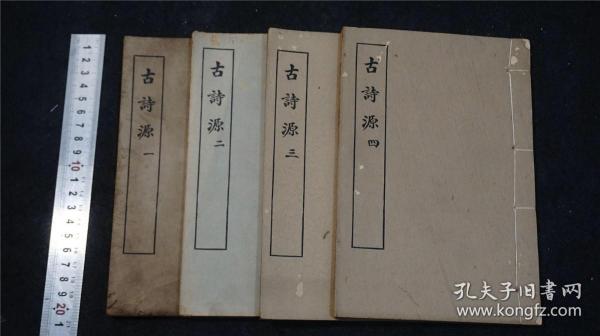 古詩源 一
古詩源 二
古詩源 三
古詩源 四
1 2 3 4 5 6 7 8 9 10 1 2 3 4 5 6 7 8 9 20 1
孔夫子旧书网
kongfz.com